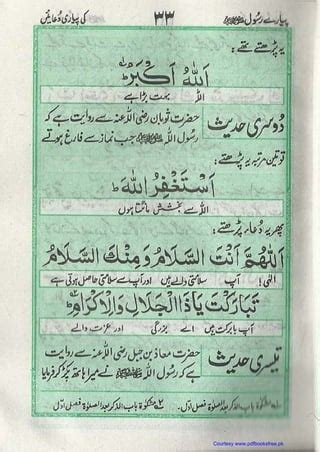 پیارے رسول ﷺ ۳۳ کی پیاری دعائیں
یہ پڑھتے تھے:
اَللّٰهُ اَكْبَرُ
اللہ بہت بڑا ہے
دوسری حدیث حضرت ثوبان رضی اللہ عنہ سے روایت ہے کہ
رسول اللہ ﷺ جب نماز سے فارغ ہوتے
تو تین مرتبہ یہ پڑھتے:
اَسْتَغْفِرُ اللهَ
اللہ سے بخشش مانگتا ہوں
پھر یہ دعاء پڑھتے:
اَللّٰهُمَّ اَنْتَ السَّلَامُ وَمِنْكَ السَّلَامُ
الٰہی! آپ سلامتی والے ہیں اور آپ سے سلامتی حاصل ہوتی ہے
تَبَارَكْتَ يَا ذَا الْجَلَالِ وَالْاِكْرَامِ
آپ بابرکت ہیں اے بزرگی اور عزت والے
تیسری حدیث حضرت معاذ بن جبل رضی اللہ عنہ سے روایت
ہے کہ رسول اللہ ﷺ نے میرا ہاتھ پکڑ کر فرمایا
مشکوٰۃ باب الذکر بعد الصلوٰۃ فصل اوّل۔ ۲ مشکوٰۃ باب الذکر بعد الصلوٰۃ فصل اوّل۔
Courtesy www.pdfbooksfree.pk